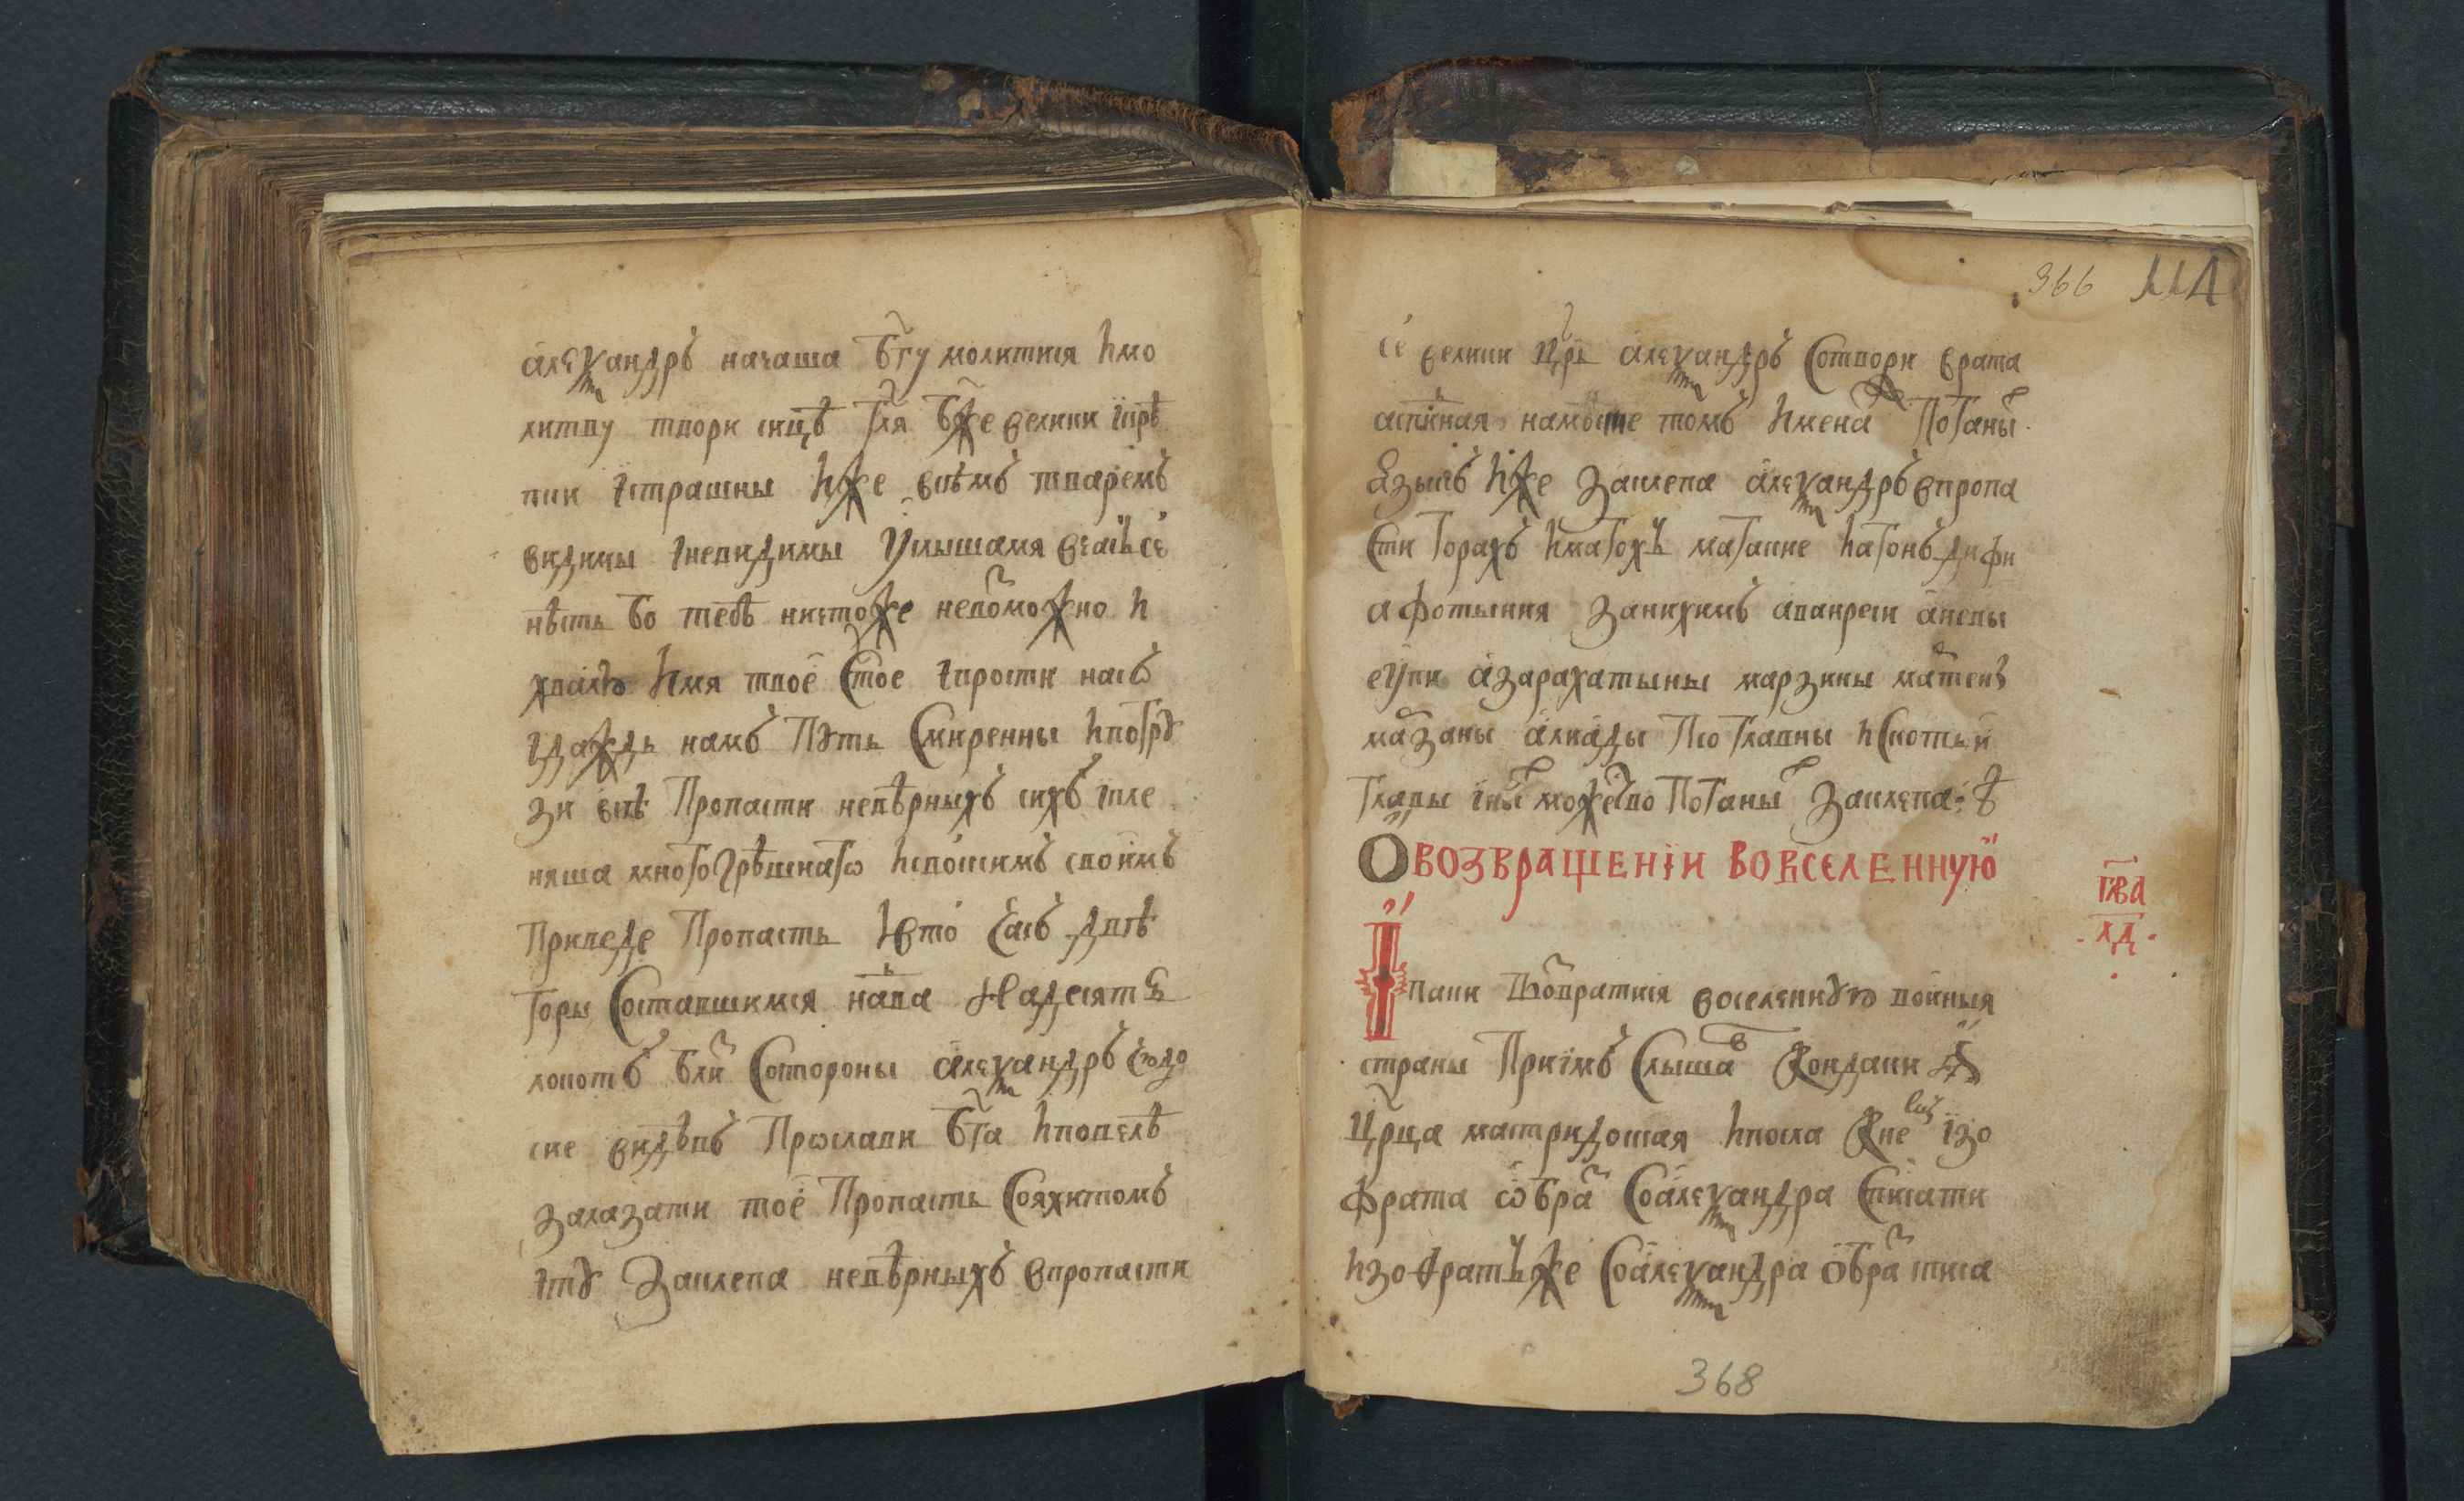 алеѯандръ начаша бг҃у молитися имо
литву твори сицѣ гл҃я бж҃е велики икрѣ
пки истрашны иже всѣмъ тваремъ
видимы иневидимы услышамя вчасъсе
нѣсть бо тебѣ ничтоже невоможно и
хвалю имя твое ст҃ое ипрости насъ
идаждь намъ пꙋть смиренны ипогрꙋ
зи всѣ пропасти невѣрныхъ сихъ
няша многогрѣшнагѡ своимъ
приведе пропасть ивто часъ двѣ
горы составшимся надва надесять
локотъ бли состороны алеѯандръ чюдо
сие видѣвъ прѡслави бг҃а иповелѣ
залазати тое пропасть
итꙋ заклепа невѣрныхъ впропасти
366 114
се велики цр҃ь алеѯандръ сотвори врата
намѣсте томъ имена поганы
языкъ иже заклепа алеѯандръ впропа
сти горахъ имагохъ магание нагонъ дифи
афотыния занихимъ аванреси аневы
еупи азарахатыны марзины матенъ
мазаны алкады псоглавны искотьи
главы ины можедво поганы заклепа
Овозвращении вовселенную
гл҃ва
л҃д
Ипаки возвратися воселеннꙋю воиныя
страны приимъ слыша кондаки
цр҃ца мастридоская ипосла кне изо
фрата ѡбра соалеѯандра списати
изофратъже соалеѯандра обра списа
368